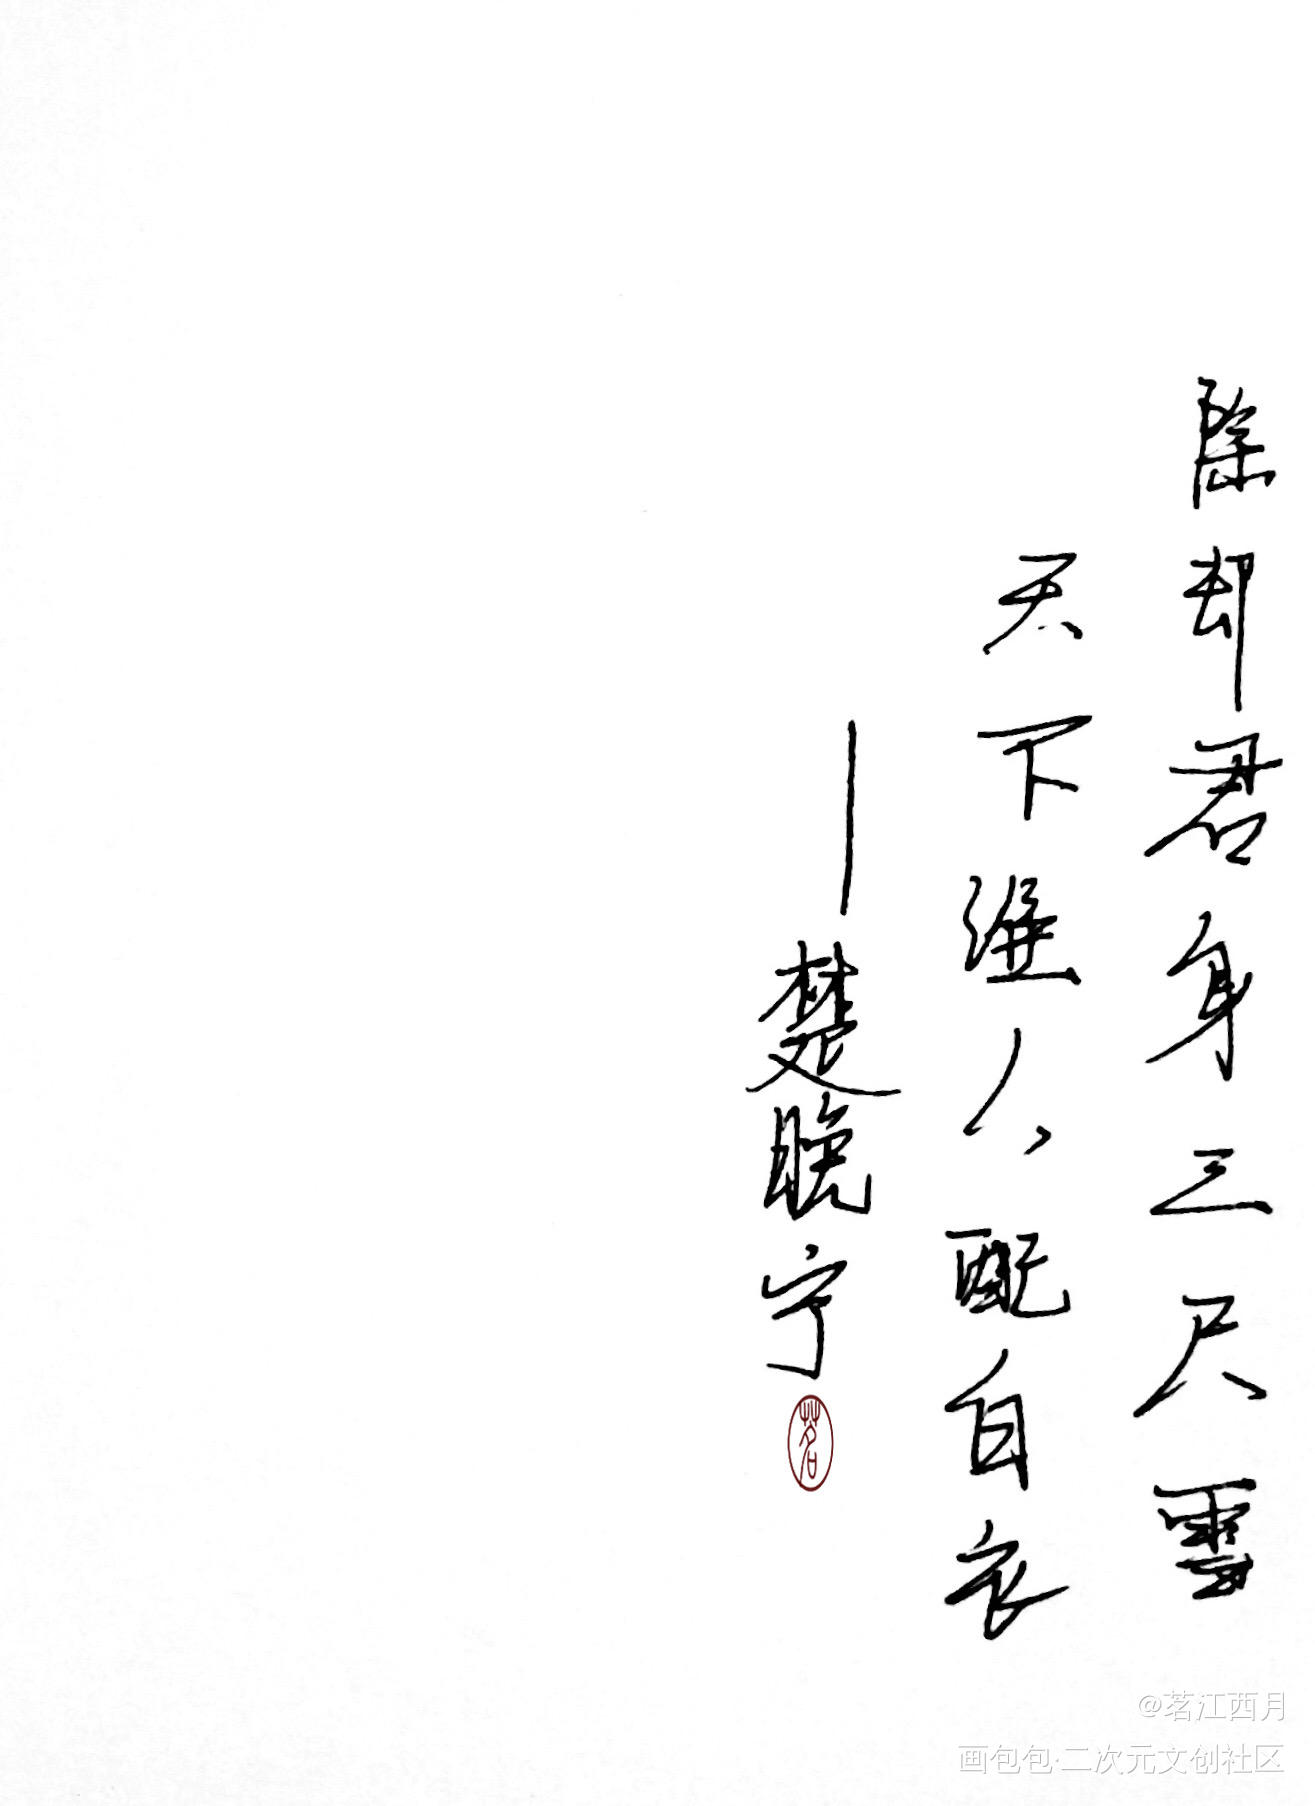 除却君身三尺雪
天下谁人配白衣
——楚晚宁
茗
@茗江西月
画包包·二次元文创社区